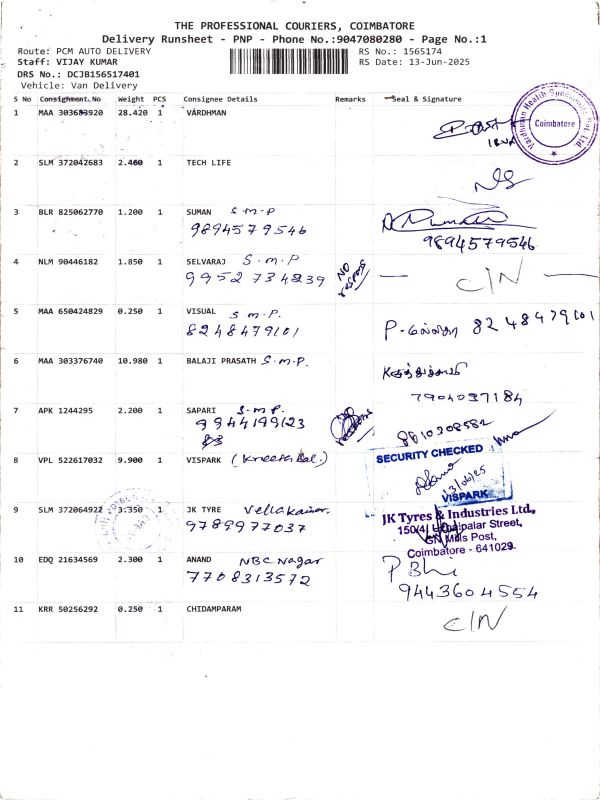 THE PROFESSIONAL COURIERS, COIMBATORE
Delivery Runsheet - PNP - Phone No.:9047080280 - Page No.:1
Route: PCM AUTO DELIVERY RS No.: 1565174
Staff: VIJAY KUMAR RS Date: 13-Jun-2025
DRS No.: DCJB156517401
Vehicle: Van Delivery
S No Consignment No Weight PCS Consignee Details Remarks Seal & Signature
1 MAA 303683920 28.420 1 VARDHMAN
Vardhman Health Specialities Pvt. Ltd.
Coimbatore
2 SLM 372042683 2.460 1 TECH LIFE
3 BLR 825062770 1.200 1 SUMAN S-M-P
9894579546 9894579546
4 NLM 90446182 1.850 1 SELVARAJ S.M.P NO C/N
9952734239
5 MAA 650424829 0.250 1 VISUAL S M P.
8248479101 8248479101
6 MAA 303376740 10.980 1 BALAJI PRASATH S.M.P.
7904037184
7 APK 1244295 2.200 1 SAPARI S.M.P.
9944199123 8610208582
8 VPL 522617032 9.900 1 VISPARK
SECURITY CHECKED
13/06/25
VISPARK
9 SLM 372064922 3.350 1 JK TYRE
9789977037
JK Tyres & Industries Ltd.,
Street,
GN Mills Post,
Coimbatore - 641029.
10 EDQ 21634569 2.300 1 ANAND NBC Nagar
7708313572 9443604554
11 KRR 50256292 0.250 1 CHIDAMPARAM C/N